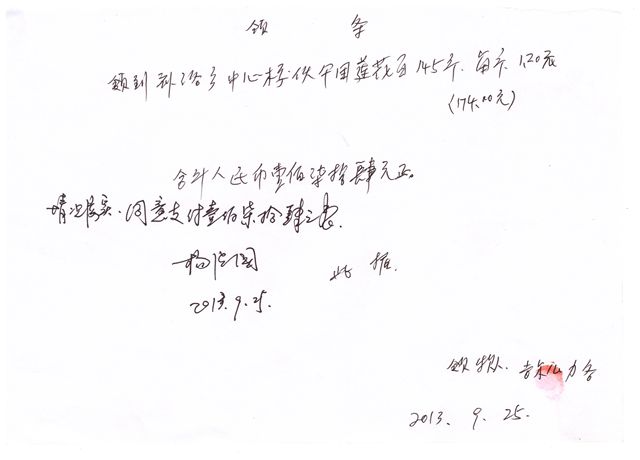 领 条
领到补洛乡中心校伙食用莲花白145斤. 每斤1.20元
(174.00元)
合计人民币壹佰柒拾肆元正。
情况属实. 同意支付壹佰柒拾肆元正.
杨
此据.
2013.9.25.
领款人. 吉
2013. 9. 25.